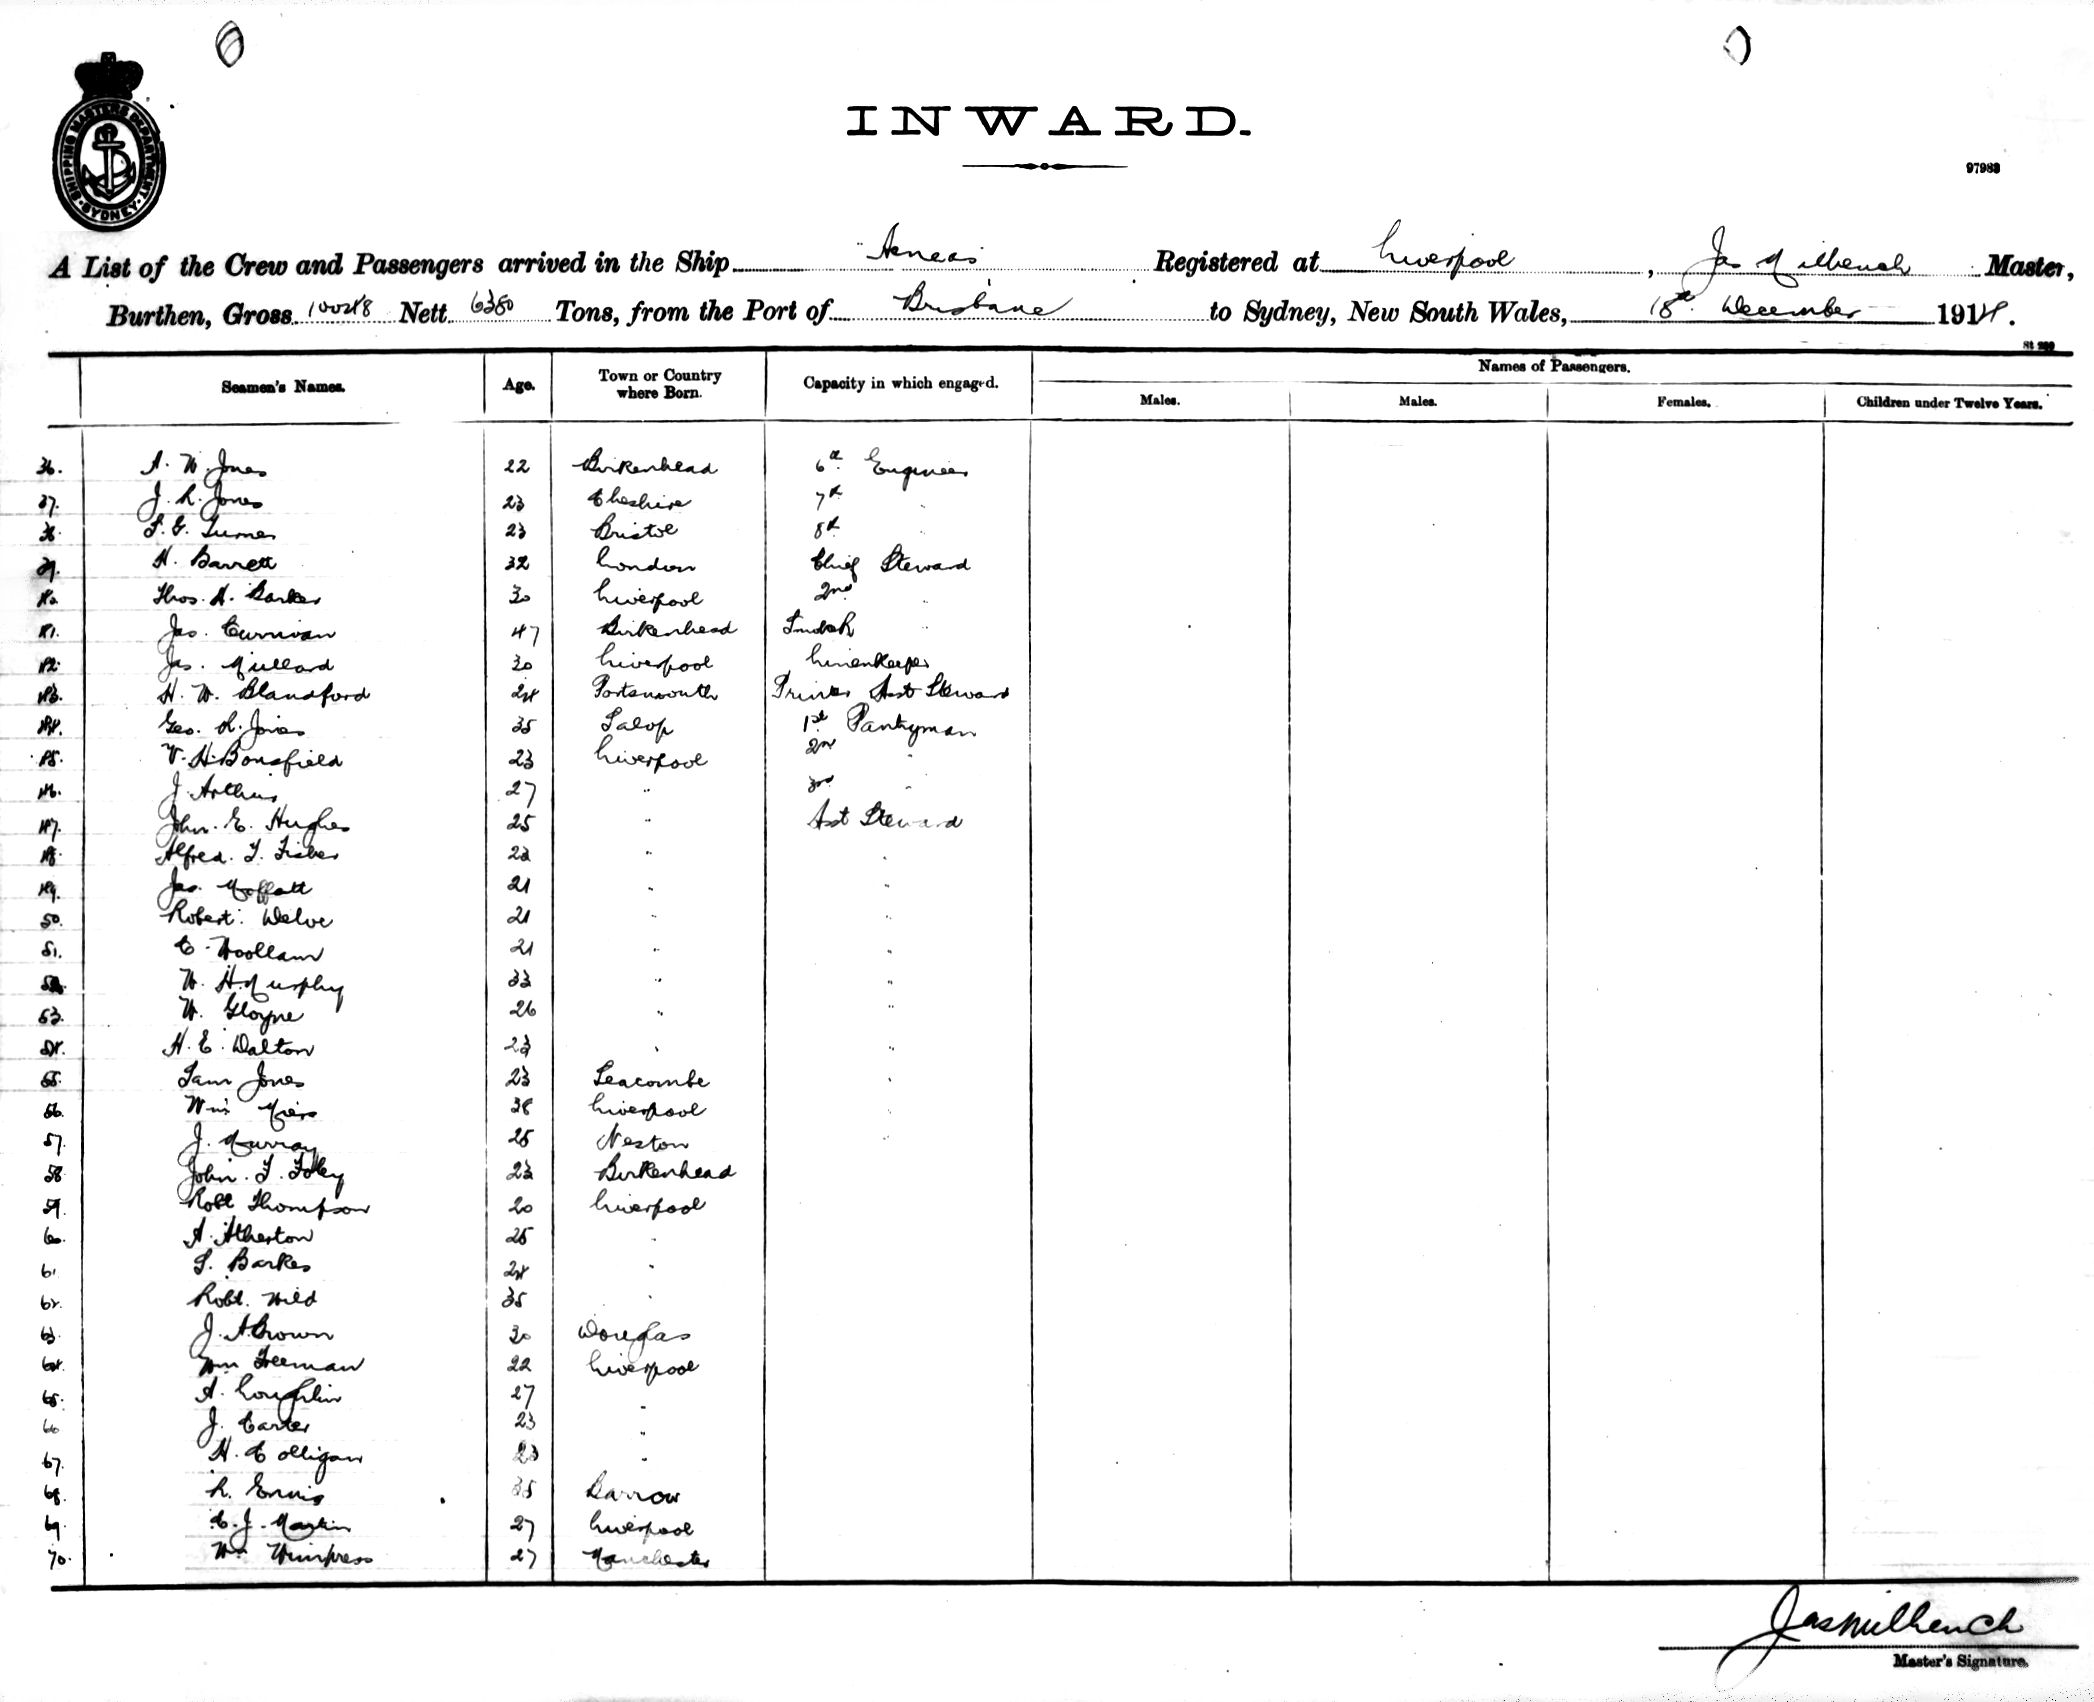 SHIPPING MASTERS DEPARTMENT · SYDNEY ·
INWARD.
97983
A List of the Crew and Passengers arrived in the Ship "Aeneas" Registered at Liverpool, Jas Milbench Master,
Burthen, Gross 10048 Nett 6380 Tons, from the Port of Brisbane to Sydney, New South Wales, 18th December 1914.
Seamen's Names. Age. Town or Country where Born. Capacity in which engaged. Names of Passengers.
Males. Males. Females. Children under Twelve Years.
36. A. W. Jones 22 Birkenhead 6th Engineer
37. J. R. Jones 23 Cheshire 7th "
38. F. G. Turner 23 Bristol 8th
39. H. Barrett 32 London Chief Steward
40. Thos. H. Barker 30 Liverpool 2nd "
41. Jas. Currivan 47 Birkenhead "
42. Jas. Millard 30 Liverpool Linenkeeper
43. H. W. Blandford 24 Portsmouth Printer Asst Steward
44. Geo. R. Jones 35 Salop 1st Pantryman
45. V. H. Bousfield 23 Liverpool 2nd "
46. J. Arthur 27 " 3rd "
47. John. E. Hughes 25 " Asst Steward
48. Alfred. T. Fisher 22 " "
49. Jas. Moffatt 21 " "
50. Robert. 21 " "
51. C. Woollam 21 " "
52. W. H. Murphy 33 " "
53. W. Gloyne 26 " "
54. H. E. Walton 23 " "
55. Sam Jones 23 Seacombe "
56. Wm Miers 38 Liverpool "
57. J. Murray 25 Neston "
58. John. F. Foley 23 Birkenhead
59. Robt Thompson 20 Liverpool
60. A. Atherton 25 "
61. S. Barkes 24 "
62. Robt. Wild 35 "
63. J. A. Brown 30 Douglas
64. Wm Freeman 22 Liverpool
65. A. Loughlin 27 "
66 J. Carter 23 "
67. H. Colligan 23 "
68. R. Ennis 35 Barrow
69. C. J. Martin 27 Liverpool
70. Wm Wimpress 27 Manchester
Jas Milbench
Master's Signature.